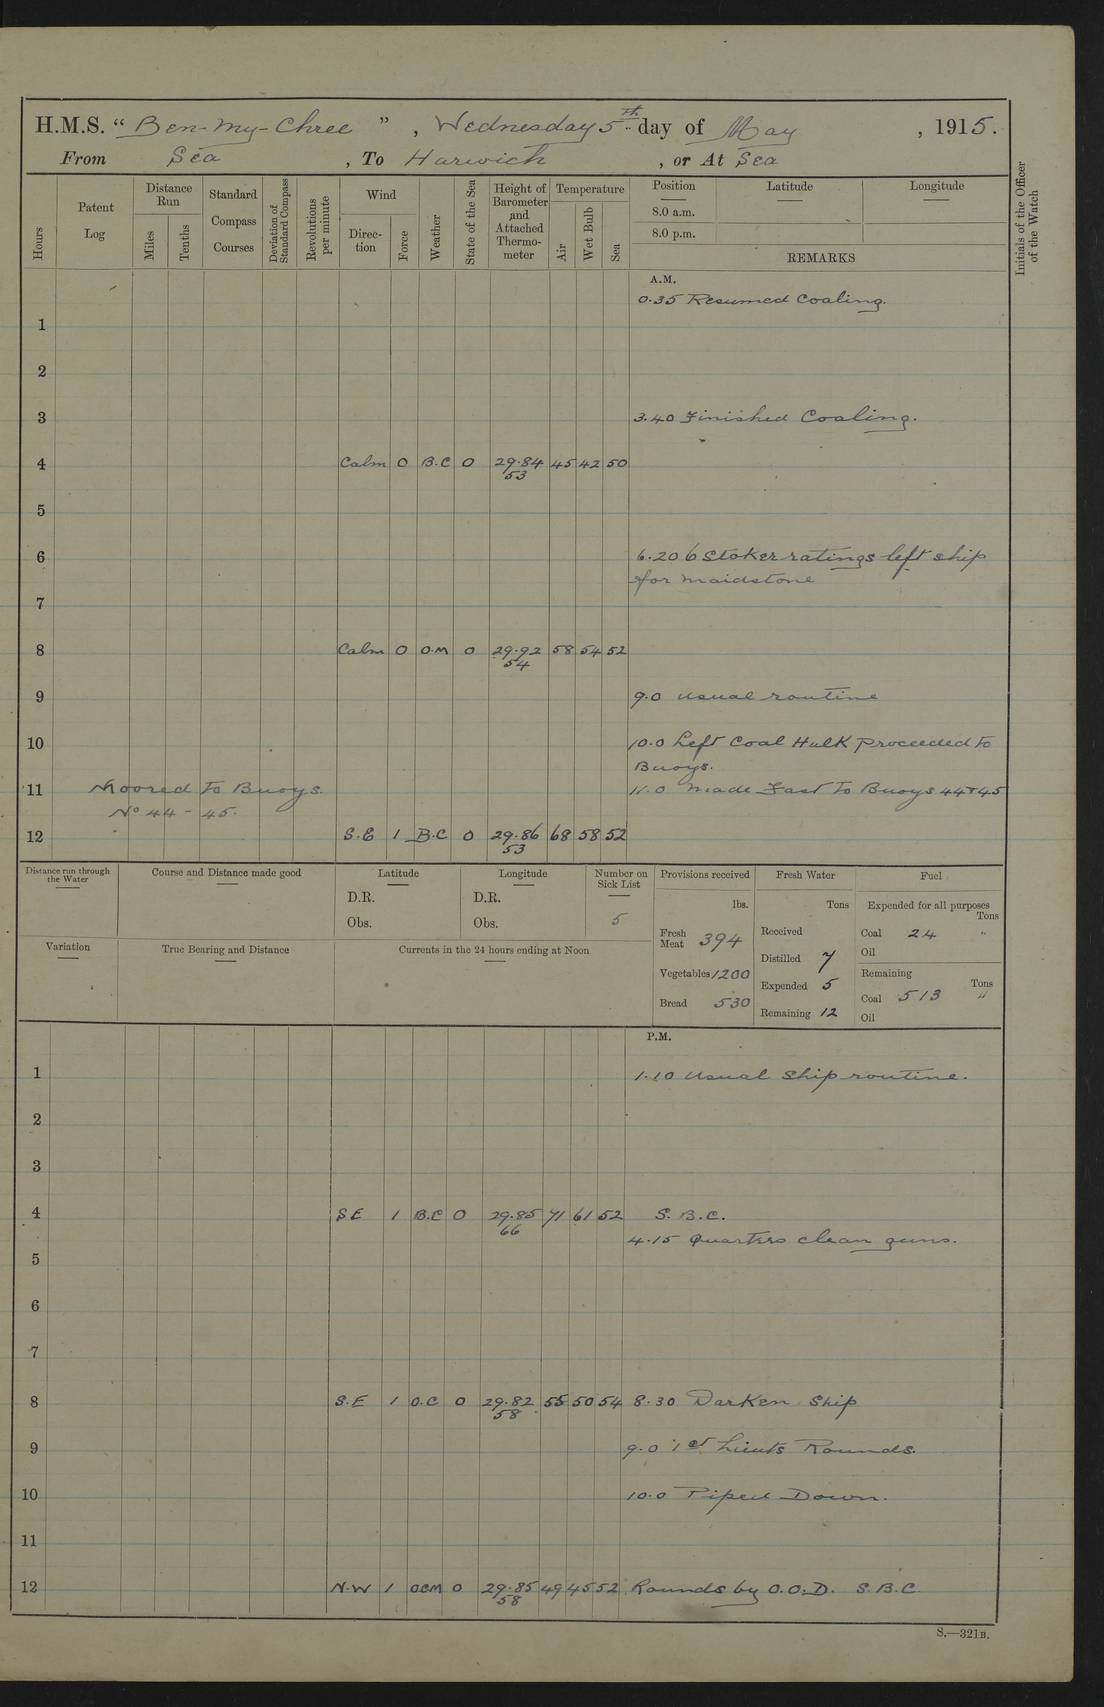 H.M.S. “ Ben-My-Chree ” , Wednesday 5th day of May , 1915.
From Sea , To Harwich , or At Sea
Hours
Patent Log
Distance Run
Miles
Tenths
Standard Compass Courses
Deviation of Standard Compass
Revolutions per minute
Wind
Direc-tion
Force
Weather
State of the Sea
Height of Barometer and Attached Thermo-meter
Temperature
Air
Wet Bulb
Sea
Position
8.0 a.m.
8.0 p.m.
Latitude
Longitude
REMARKS
Initials of the Officer of the Watch
A.M.
0.35 Resumed Coaling.
1
2
3 3.40 Finished Coaling.
4 Calm 0 B.C 0 29.84 45 42 50
53
5
6 6.20 6 Stoker ratings left ship
for Maidstone
7
8 Calm 0 O.M 0 29.92 58 54 52
54
9 9.0 Usual routine
10 10.0 Left Coal Hulk Proceeded to
Buoys.
11 Moored to Buoys 11.0 Made Fast to Buoys 44+45
No 44 - 45.
12 S.E 1 B.C 0 29.86 68 58 52
53
Distance run through the Water
Course and Distance made good
Latitude
D.R.
Obs.
Longitude
D.R.
Obs.
Number on Sick List
5
Provisions received
lbs.
Fresh Meat 394
Vegetables 1200
Bread 530
Fresh Water
Tons
Received
Distilled 7
Expended 5
Remaining 12
Fuel
Expended for all purposes
Tons
Coal 24 "
Oil
Remaining
Tons
Coal 513 "
Oil
Variation
True Bearing and Distance
Currents in the 24 hours ending at Noon
P.M.
1 1.10 Usual Ship routine.
2
3
4 S E 1 B.C 0 29.85 71 61 52 S.B.C.
66
4.15 Quarters clean guns.
5
6
7
8 S.E 1 O.C 0 29.82 55 50 54 8.30 Darken Ship
58
9 9.0 1st Lieuts Rounds.
10 10.0 Piped Down.
11
12 N.W 1 OCM 0 29.85 49 45 52 Rounds by O.O.D. S.B.C.
58
S.—321B.